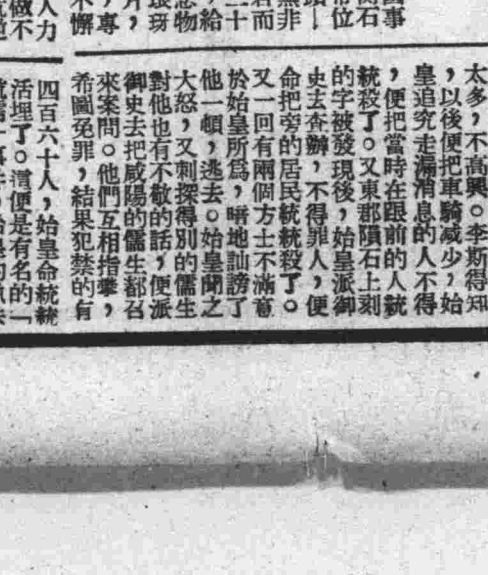 國事
衡石
二十
，給
念物
，專
不懈
人力
做不
太多，不高興。李斯得知
，以後便把車騎減少，始
皇追究走漏消息的人不得
，便把當時在跟前的人統
統殺了。又東郡隕石上刻
的字被發現後，始皇派御
史去查辦，不得罪人，便
命把旁的居民統統殺了。
又一回有兩個方士不滿意
於始皇所爲，暗地訕謗了
他一頓，逃去。始皇聞之
大怒，又刺探得別的儒生
對他也有不敬的話，便派
御史去把咸陽的儒生都召
來案問。他們互相指攀，
希圖免罪，結果犯禁的有
四百六十人，始皇命統統
活埋了。這便是有名的「